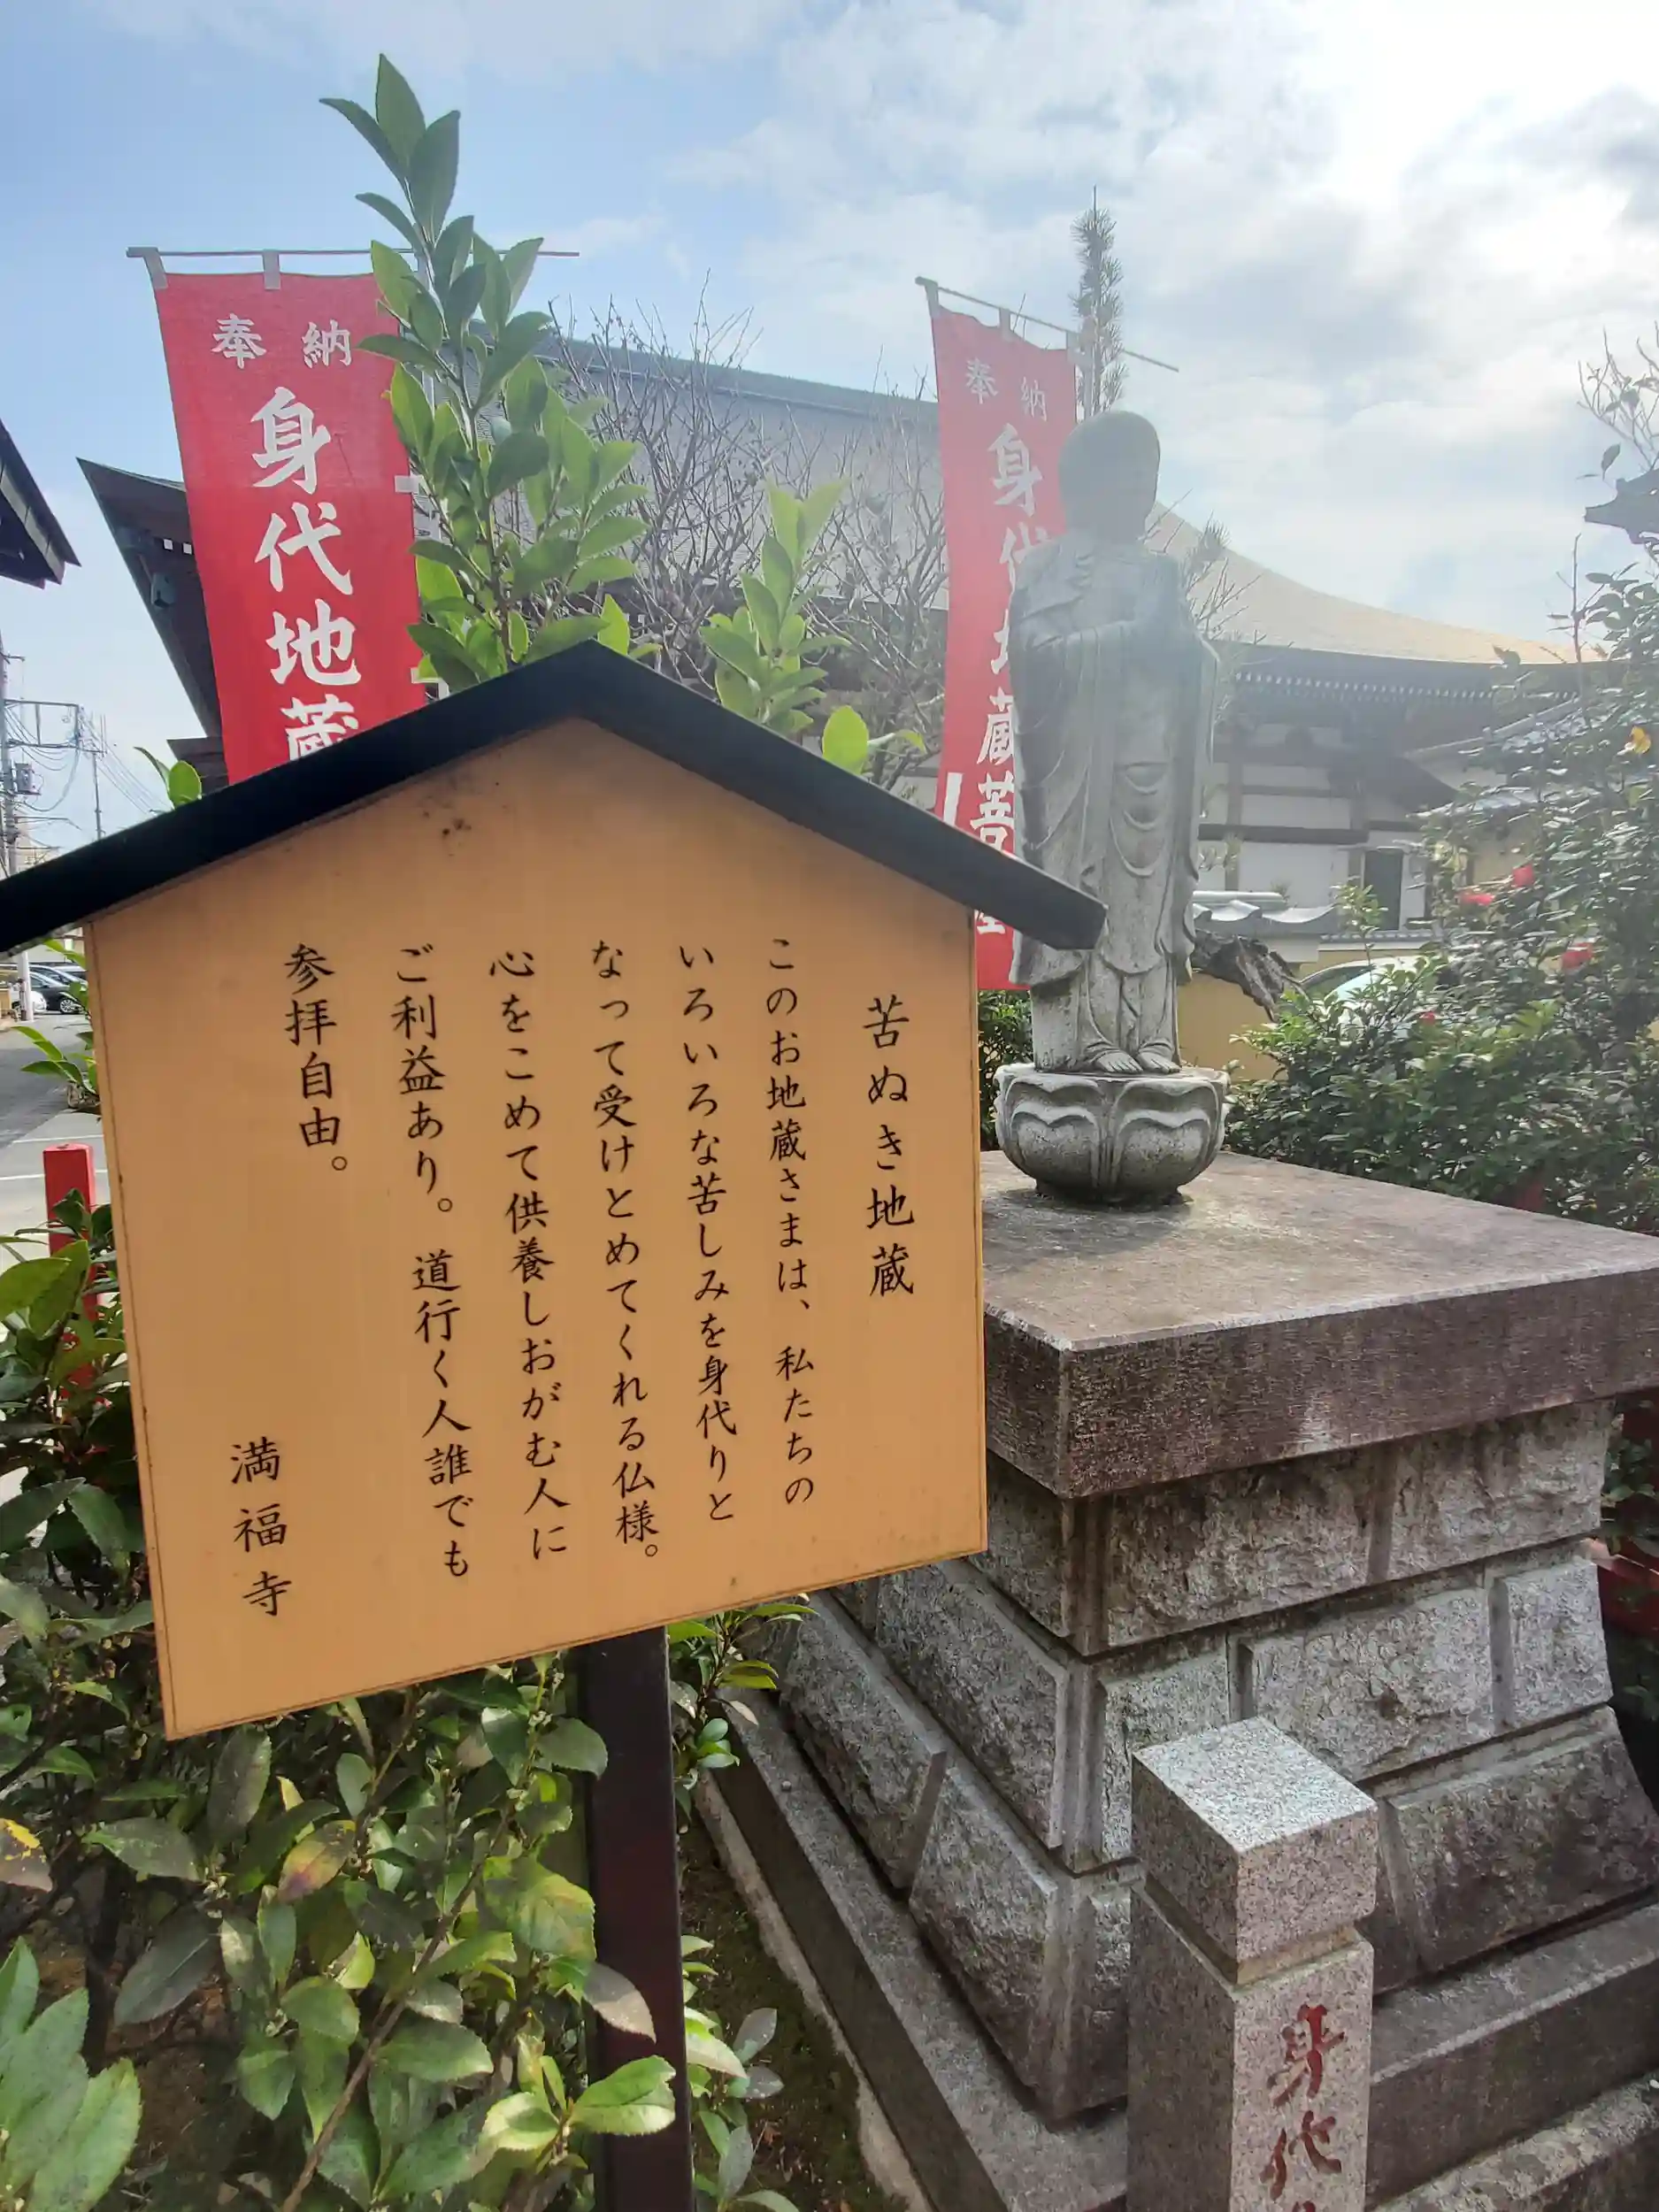 奉納
身代地蔵
奉納
身代地蔵菩
苦ぬき地蔵
このお地蔵さまは、私たちの
いろいろな苦しみを身代りと
なって受けとめてくれる仏様。
心をこめて供養しおがむ人に
ご利益あり。道行く人誰でも
参拝自由。
満福寺
身代